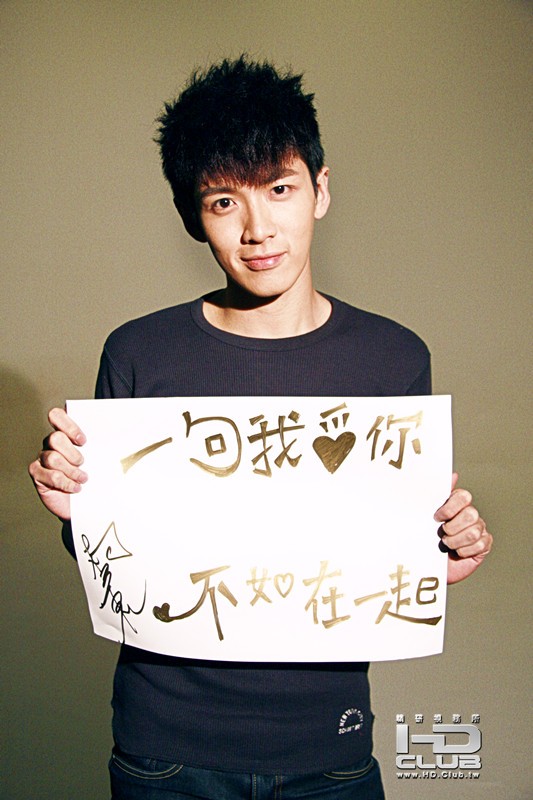 一句我愛你
不如在一起
NEW YORK
精研視務所
HD
CLUB
www.HD.Club.tw